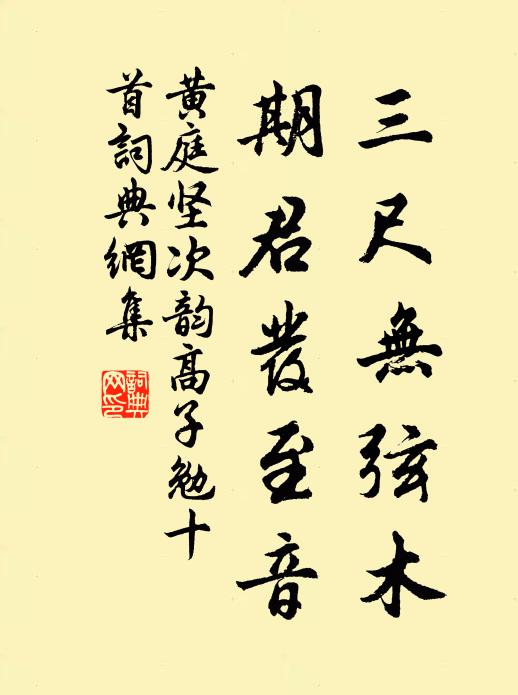 三尺無弦木
期君發至音
黄庭坚次韵高子勉十
首詞典網集
詞典
网印